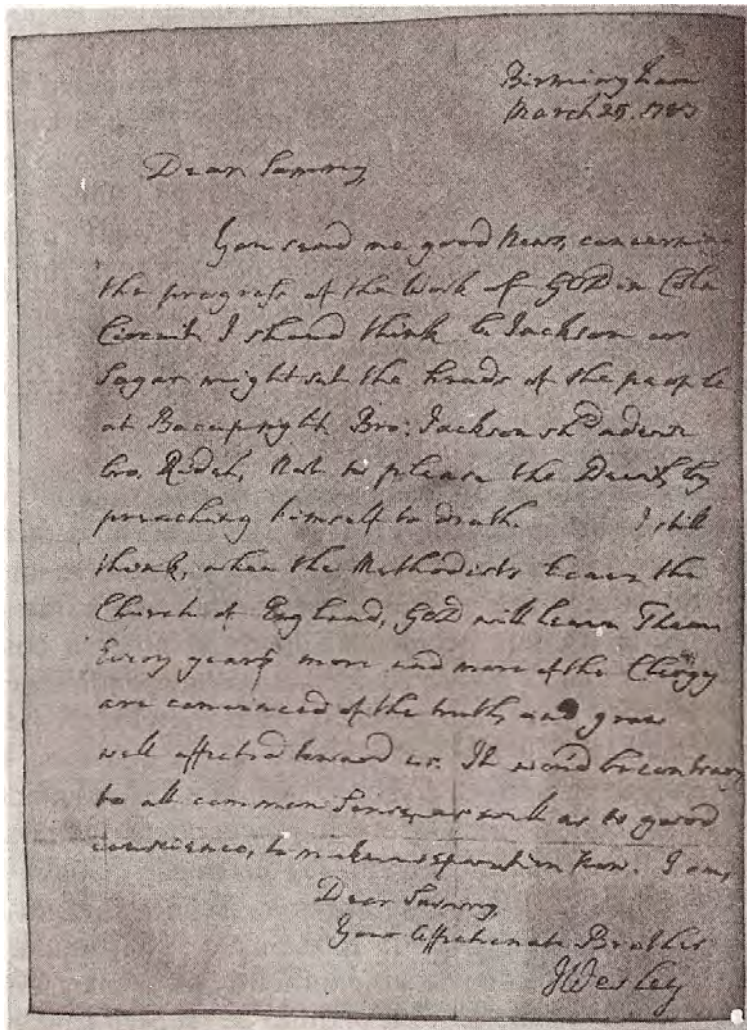 Birmingham
March 25. 1783
Dear Sammy,
You send me good News, concerning
the progress of the Work of GOD in Coln
Circuit. I shoud think b. Jackson or
Sagar might set the heads of the people
at Bacup right. Bro. Jackson shd advise
bro. Ridel, Not to please the Devil by
preaching himself to death. I still
think, when the Methodists leave the
Church of England, GOD will leave Them.
Every year more and more of the Clergy
are convinced of the truth, and grow
well affected toward us. It woud be contrary
to all common Sense, as well as to good
conscience, to make a separation Now. I am,
Dear Sammy,
Your Affectionate Brother
JWesley